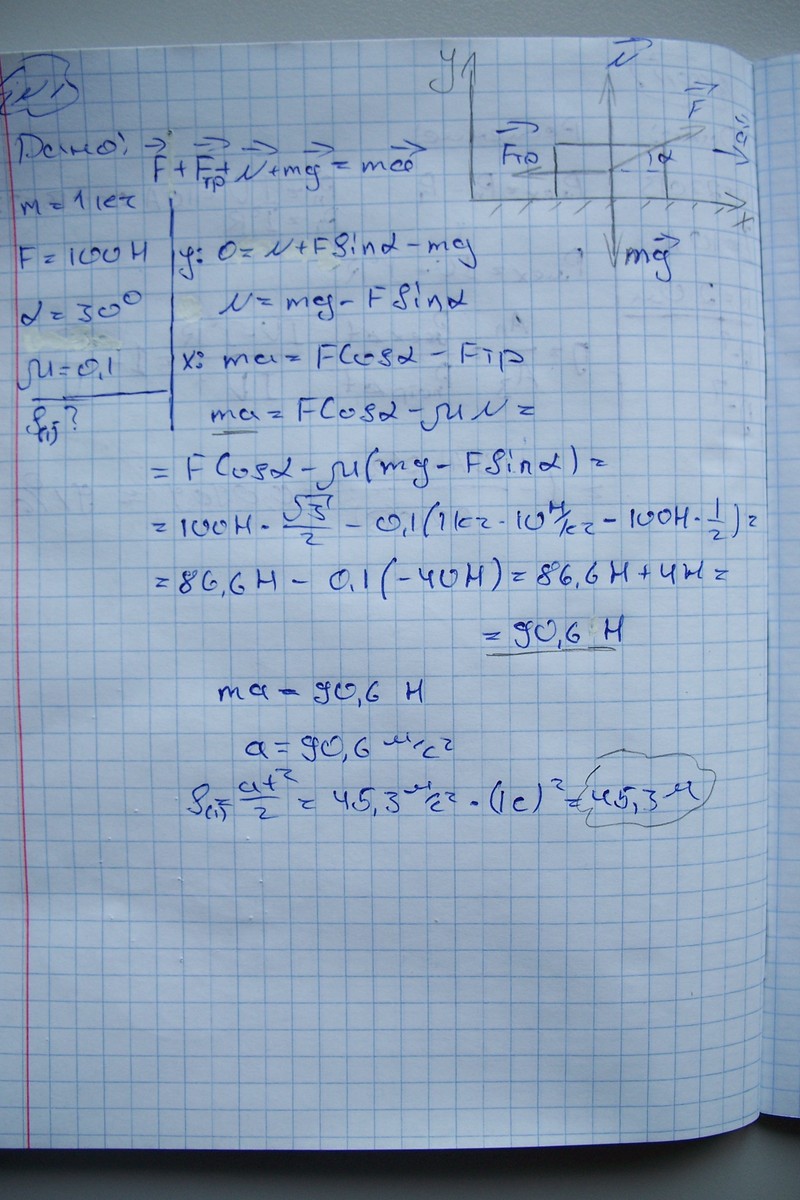 №1
Дано:
F + Fтр + N + mg = ma
m = 1 кг
F = 100 Н
α = 30°
μ = 0,1
S(1)?
y
N
F
Fтр
a
α
x
mg
y: 0 = N + F Sinα - mg
N = mg - F Sinα
x: ma = F Cosα - Fтр
ma = F Cosα - μN =
= F Cosα - μ(mg - F Sinα) =
= 100Н · √3/2 - 0,1(1кг · 10 Н/кг - 100Н · 1/2) =
= 86,6 Н - 0,1(-40Н) = 86,6 Н + 4Н =
= 90,6 Н
ma = 90,6 Н
a = 90,6 м/с²
S(1) = at²/2 = 45,3 м/с² · (1с)² = 45,3 м